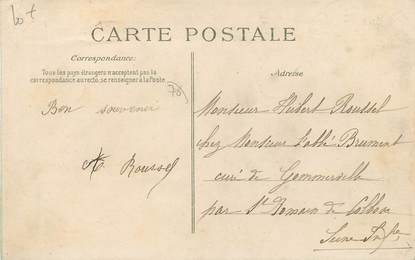 CARTE POSTALE
Correspondance:
Tous les pays étrangers n'acceptent pas la
correspondance au recto, se renseigner à la Poste
Adresse
76
Bon souvenir
Roussel
Monsieur Hubert Roussel
chez Monsieur l'abbé Brument
curé de Gommerville
par St Romain de Colbosc
Seine Infre